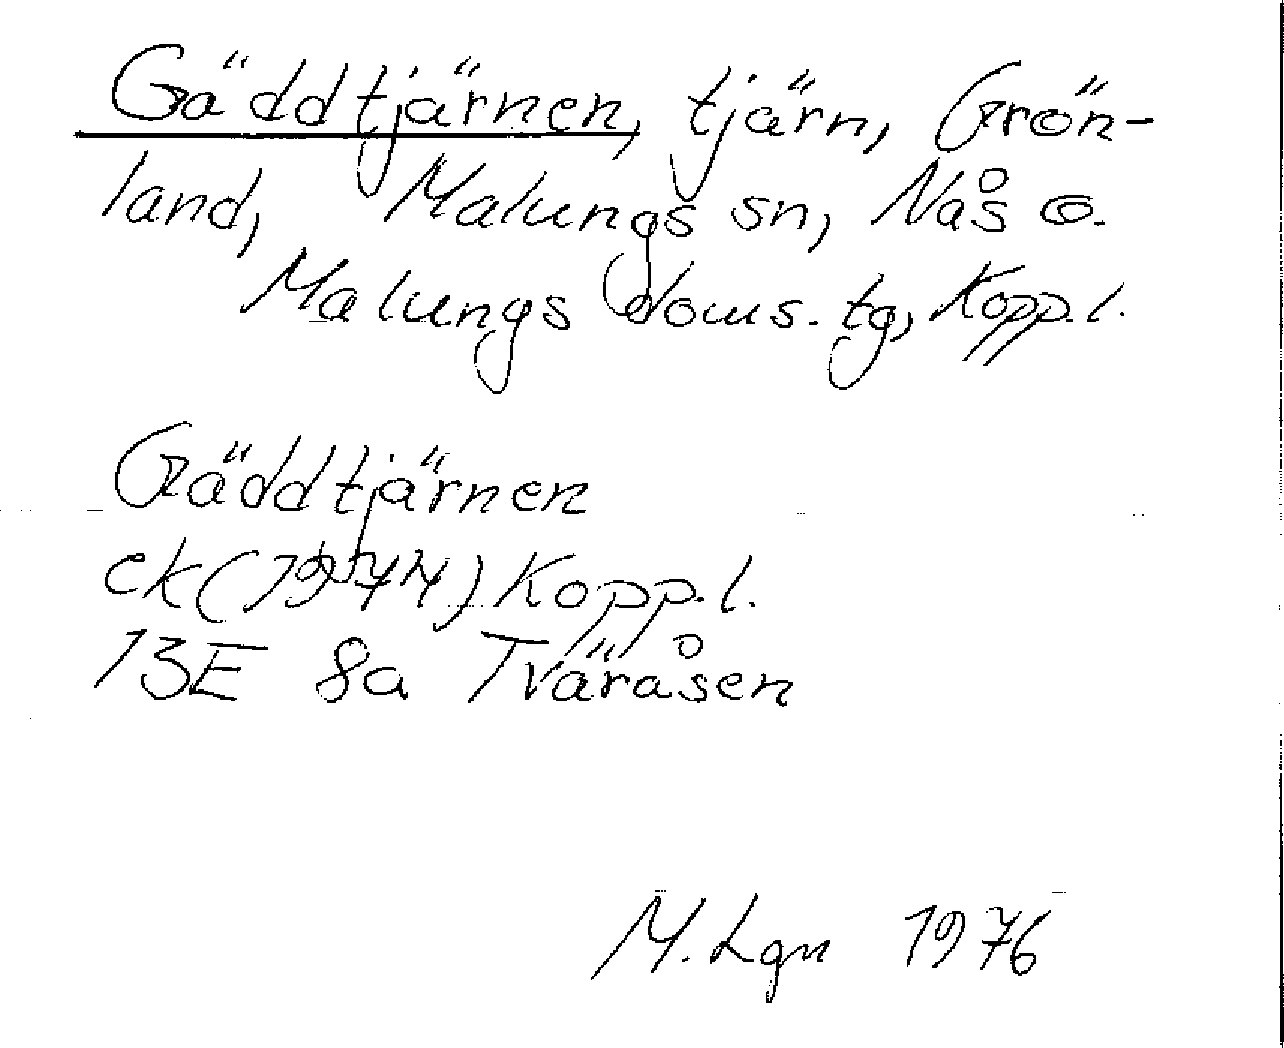 Gäddtjärnen, tjärn, Grön-
land, Malungs sn, Nås o.
Malungs doms. tg, Kopp. l.
Gäddtjärnen
ek (1974) Kopp. l.
13E 8a Tväråsen
M. Lgn 1976